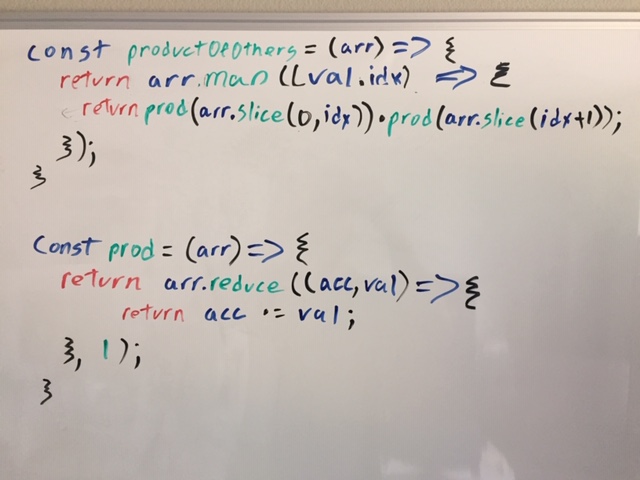 const productOfOthers = (arr) => {
return arr.map((val.idx) => {
return prod(arr.slice(0,idx))·prod(arr.slice(idx+1));
});
}
const prod = (arr) => {
return arr.reduce((acc,val) => {
return acc ·= val;
}, 1);
}